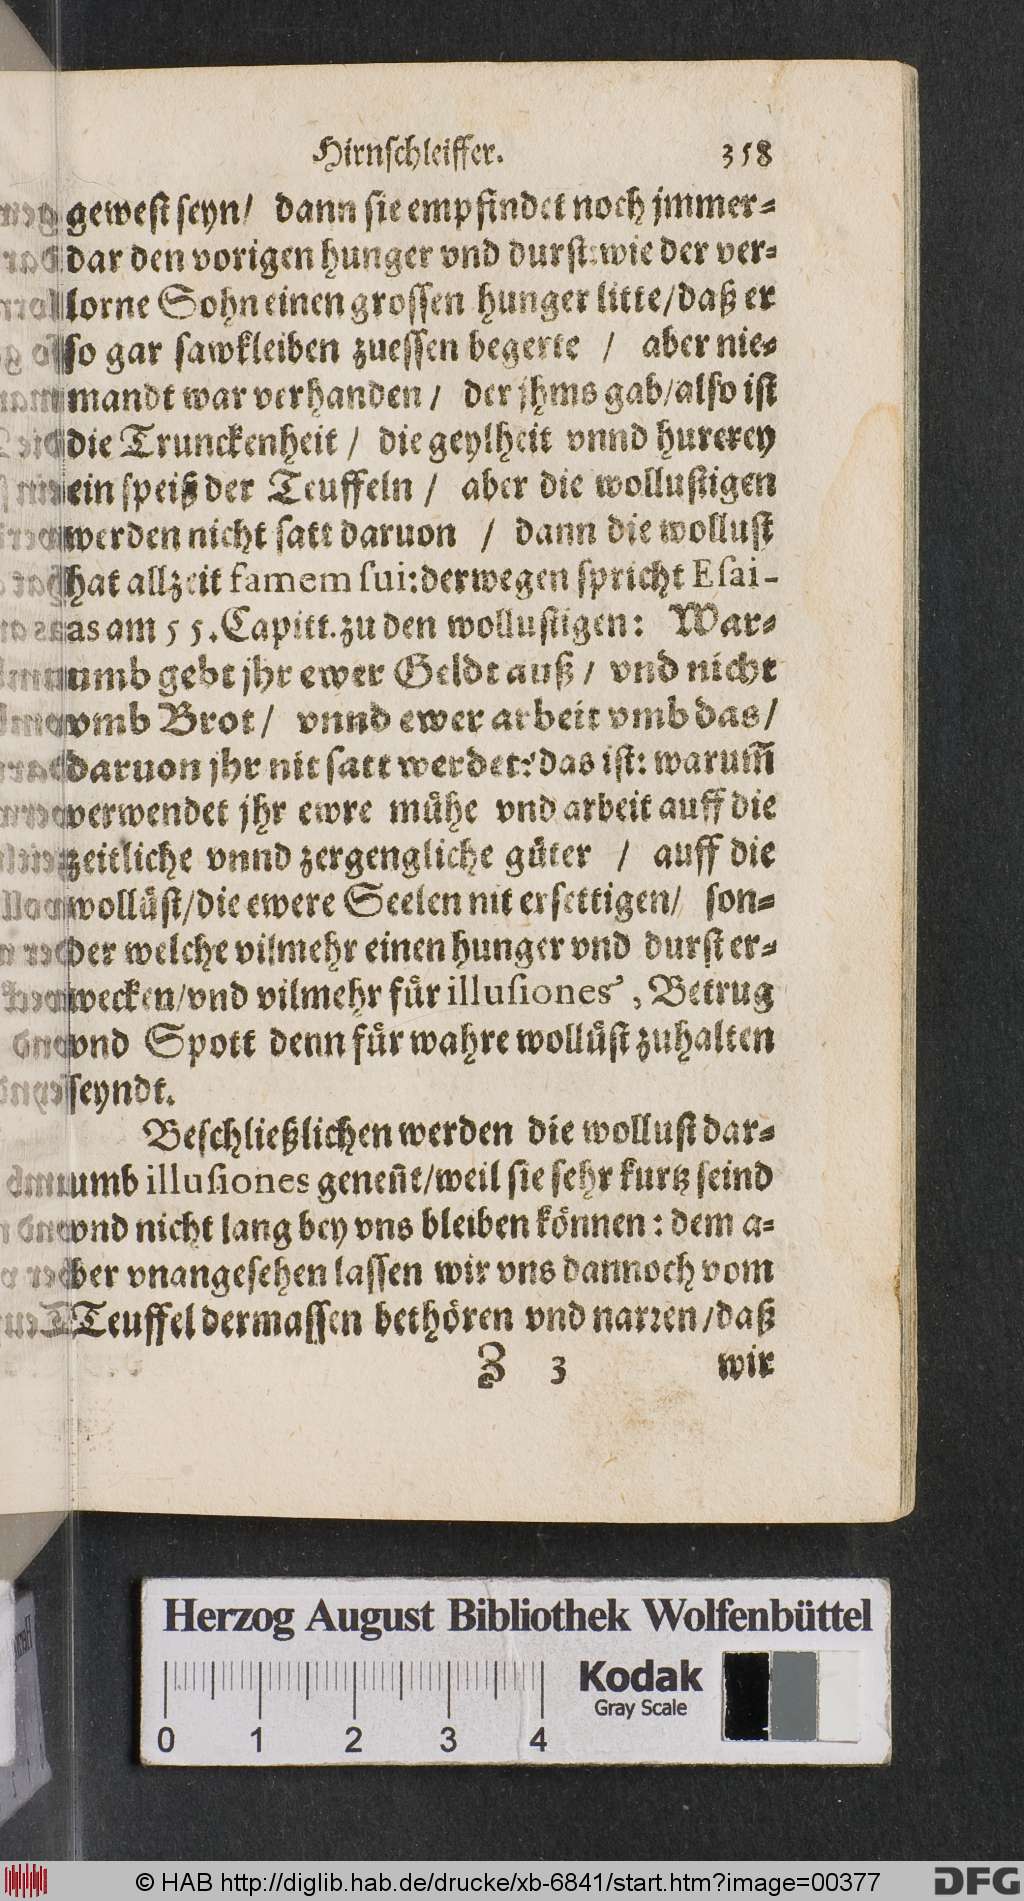 Hirnschleiffer. 358
gewest seyn/ dann sie empfindet noch jmmer-
dar den vorigen hunger vnd durst: wie der ver-
lorne Sohn einen grossen hunger litte/daß er
so gar sawkleiben zuessen begerte / aber nie-
mandt war verhanden / der jhms gab/also ist
die Trunckenheit / die geylheit vnnd hurerey
ein speiß der Teuffeln / aber die wollustigen
werden nicht satt daruon / dann die wollust
hat allzeit famem sui: derwegen spricht Esai-
as am 55. Capitt. zu den wollustigen: War-
umb gebt jhr ewer Geldt auß / vnd nicht
vmb Brot / vnnd ewer arbeit vmb das /
daruon jhr nit satt werdet: das ist: warum̃
verwendet jhr ewre mühe vnd arbeit auff die
zeitliche vnnd zergengliche güter / auff die
wollüst/die ewere Seelen nit ersettigen/ son-
der welche vilmehr einen hunger vnd durst er-
wecken/vnd vilmehr für illusiones, Betrug
vnd Spott denn für wahre wollüst zuhalten
seyndt.
Beschließlichen werden die wollust dar-
umb illusiones geneñt/weil sie sehr kurtz seind
vnd nicht lang bey vns bleiben können: dem a-
ber vnangesehen lassen wir vns dannoch vom
Teuffel dermassen bethören vnd narren/daß
Z 3 wir
Herzog August Bibliothek Wolfenbüttel
Kodak
Gray Scale
0 1 2 3 4
© HAB http://diglib.hab.de/drucke/xb-6841/start.htm?image=00377
DFG